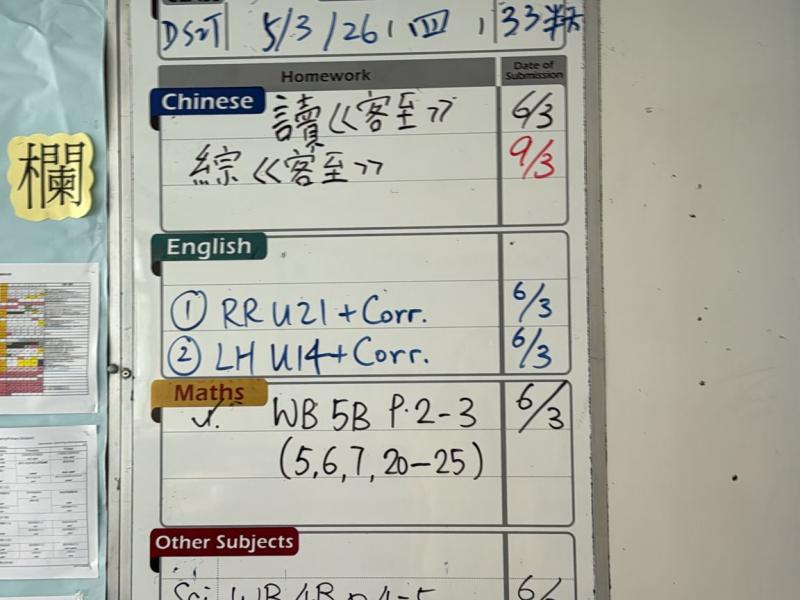 DS2T 5/3/26 (四)
Homework Date of Submission
Chinese 讀《客至》 6/3
綜《客至》 9/3
欄
English
① RR U21 + Corr. 6/3
② LH U14 + Corr. 6/3
Maths
WB 5B P.2-3 6/3
(5,6,7,20-25)
Other Subjects